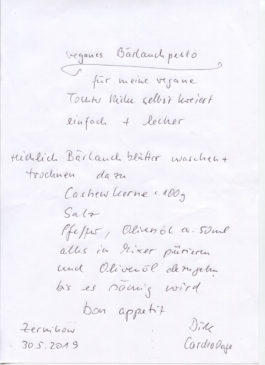 veganes Bärlauchpesto
für meine vegane
Tochter Rike selbst kreiert
einfach + lecker
reichlich Bärlauchblätter waschen +
trocknen dazu
Cashewkerne ca. 100g
Salz
Pfeffer, Olivenöl ca. 50ml
alles in Mixer pürieren
und Olivenöl dazugeben
bis es sämig wird
bon appetit
Zernikow
30.5.2019
Dirk